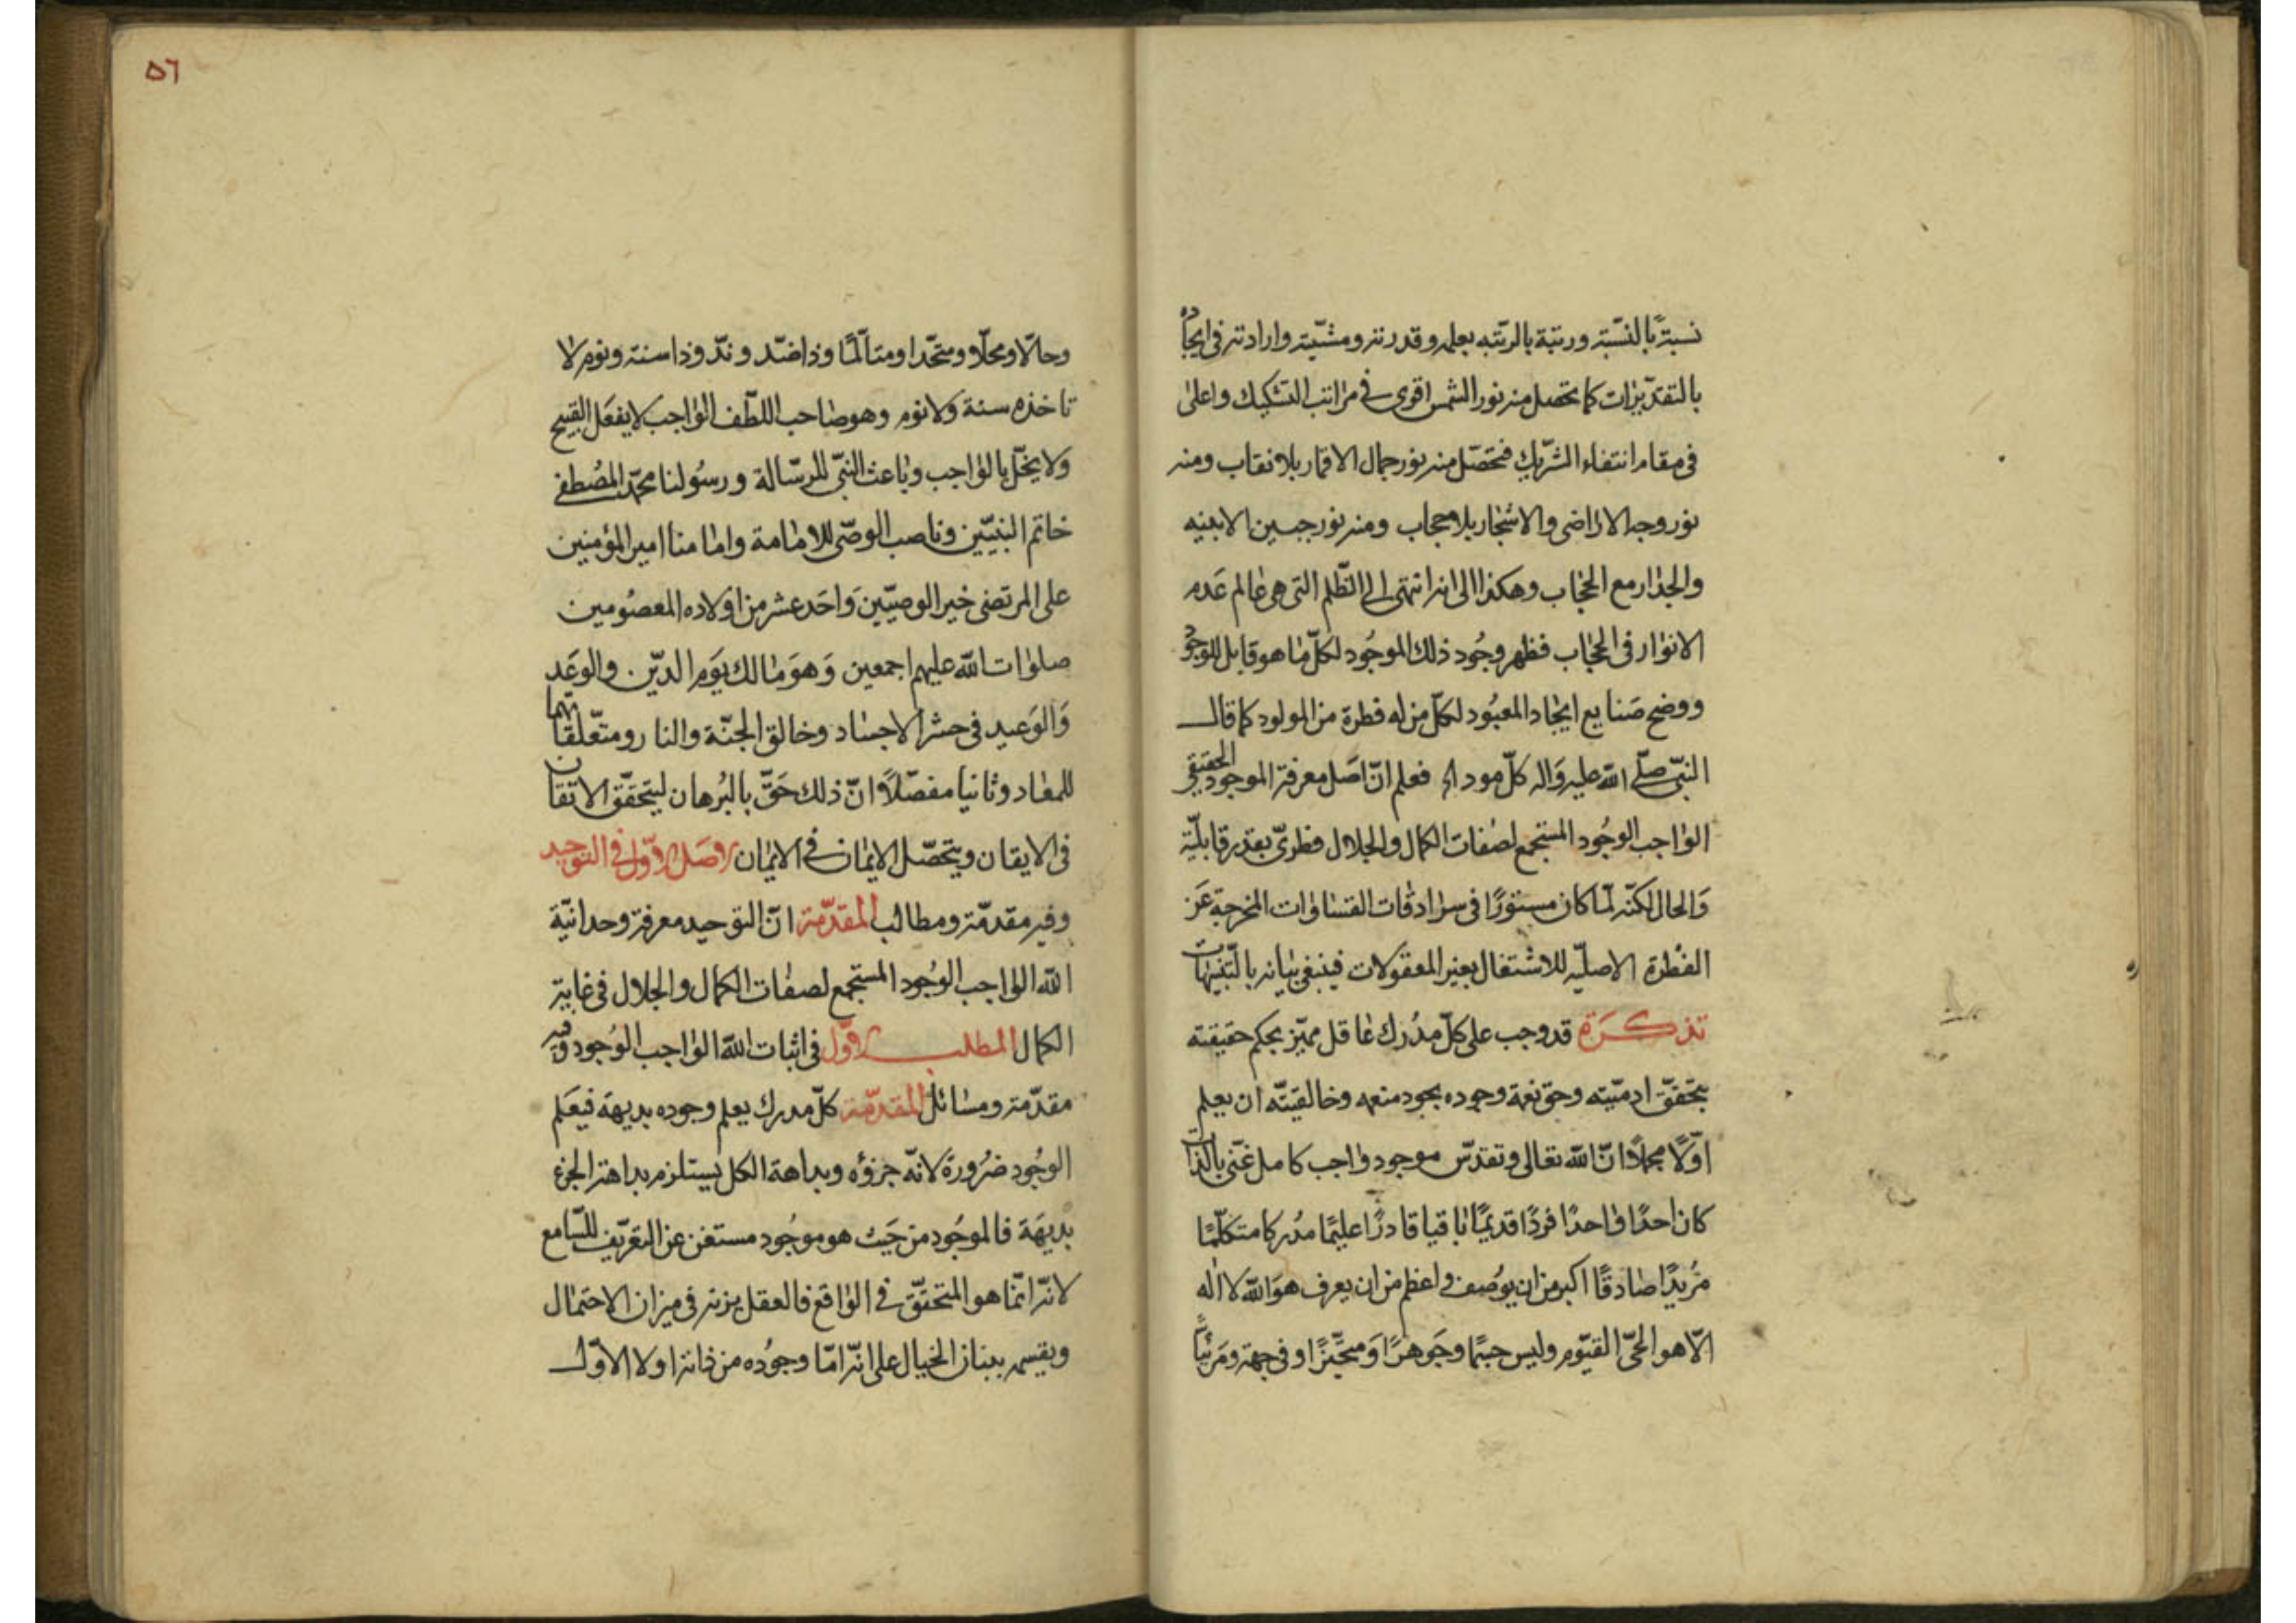 نسبة بالنسبة ورتبة بالرتبة بعلمه وقدرته ومشيّته وارادته فى ايجاده
بالتقديرات كما تحصل منه نور الشمس اقوى فى مراتب التشكيك واعلى
فى مقام انتفاء الشريك فتحصّل منه نور جمال الاقمار بلا نقاب ومنه
نور وجه الاراضى والاشجار بلا حجاب ومنه نور جبين الابنيه
والجدار مع الحجاب وهكذا الى انه انتهى الى الظّلم التى هى عالم عدم
الانوار فى الحجاب فظهر وجُود ذلك الموجُود لكلّ ما هو قابل للوجود
ووضح صنايع ايجاد المعبُود لكلّ من له فطرة من المولود كما قال
النبىّ صلّى الله عليه واله كلّ مود اه فعلم انّ اصل معرفة الموجود الحقيقى
الواجب الوجُود المستجمع لصفات الكمال والجلال فطرىّ بقدر قابليّة
والحال لكنّه لمّا كان مستورًا فى سرادقات القساوات المخرجة عن
الفطرة الاصليّه للاشتغال بغير المعقولات فينبغى بيانه بالتّنبيهات
تذكرة قد وجب على كلّ مدُرك عاقل مميّز بحكم حقيقته
بتحقّق ادميّته وحق نعمة وجوده بجود منعمه وخالقيّته ان يعلم
اوّلًا مجملًا انّ الله تعالى وتقدّس موجود واجب كامل غنّى بالذات
كان احدًا واحدًا فردًا قديمًا باقيا قادرًا عليمًا مدُركا متكلّمًا
مُريدًا صادقًا اكبر من ان يوُصف واعظم من ان يعرف هو الله لا اله
الّا هو الحىّ القيّوم وليس جسمًا وجَوهرًا ومتحيّزًا او فى جهة ومَرئيًّا
٥٦
وحالّا ومحلّا ومتحّدا ومتالّمًا وذا ضدّ وندّ وذا سنة ونوم لا
تاخذه سنة ولا نوم وهو صاحب اللطف الواجب لا يفعَل القبيح
ولا يخلّ بالواجب وباعث النبىّ للرّسالة ورسُولنا محمّد المصُطفى
خاتم النبيّين وناصب الوصّى للامامة وامامنا امير المؤمنين
على المرتضى خير الوصيّين وَاحَد عشر من اولاده المعصُومين
صلوات الله عليهم اجمعين وَهوَ مالك يَوم الدّين والوعَد
وَالوَعيد فى حشر الاجساد وخالق الجنّة والنار ومتعّلقاتهما
للمعاد وثانيا مفصّلاً انّ ذلك حَقّ بالبُرهان ليتحقّق الاتقان
فى الايقان ويتحصّل الايمان فى الايمان الاصَل الاوّل فى التوحيد
وفيه مقدمّة ومطالب المقدّمة انّ التوحيد معرفة وحدانيّة
الله الواجب الوجُود المستجمع لصفات الكمال والجلال فى غاية
الكمال المطلب الاوّل فى اثبات الله الواجب الوجُود وفيه
مقدّمة ومسائل المقدّمة كلّ مدرك يعلم وجوده بديهة فيعَلم
الوجُود ضرُورة لانّه جزؤه وبداهة الكل يستلزم بداهة الجزء
بديهَة فالموجُود من حَيث هو موجُود مستغن عن التعريف للسّامع
لانّه انّما هو المتحقّق فى الواقع فالعقل يزنه فى ميزان الاحتمال
ويقسمه ببنان الخيال على انّه امّا وجوُده من ذاته او لا الاوّل